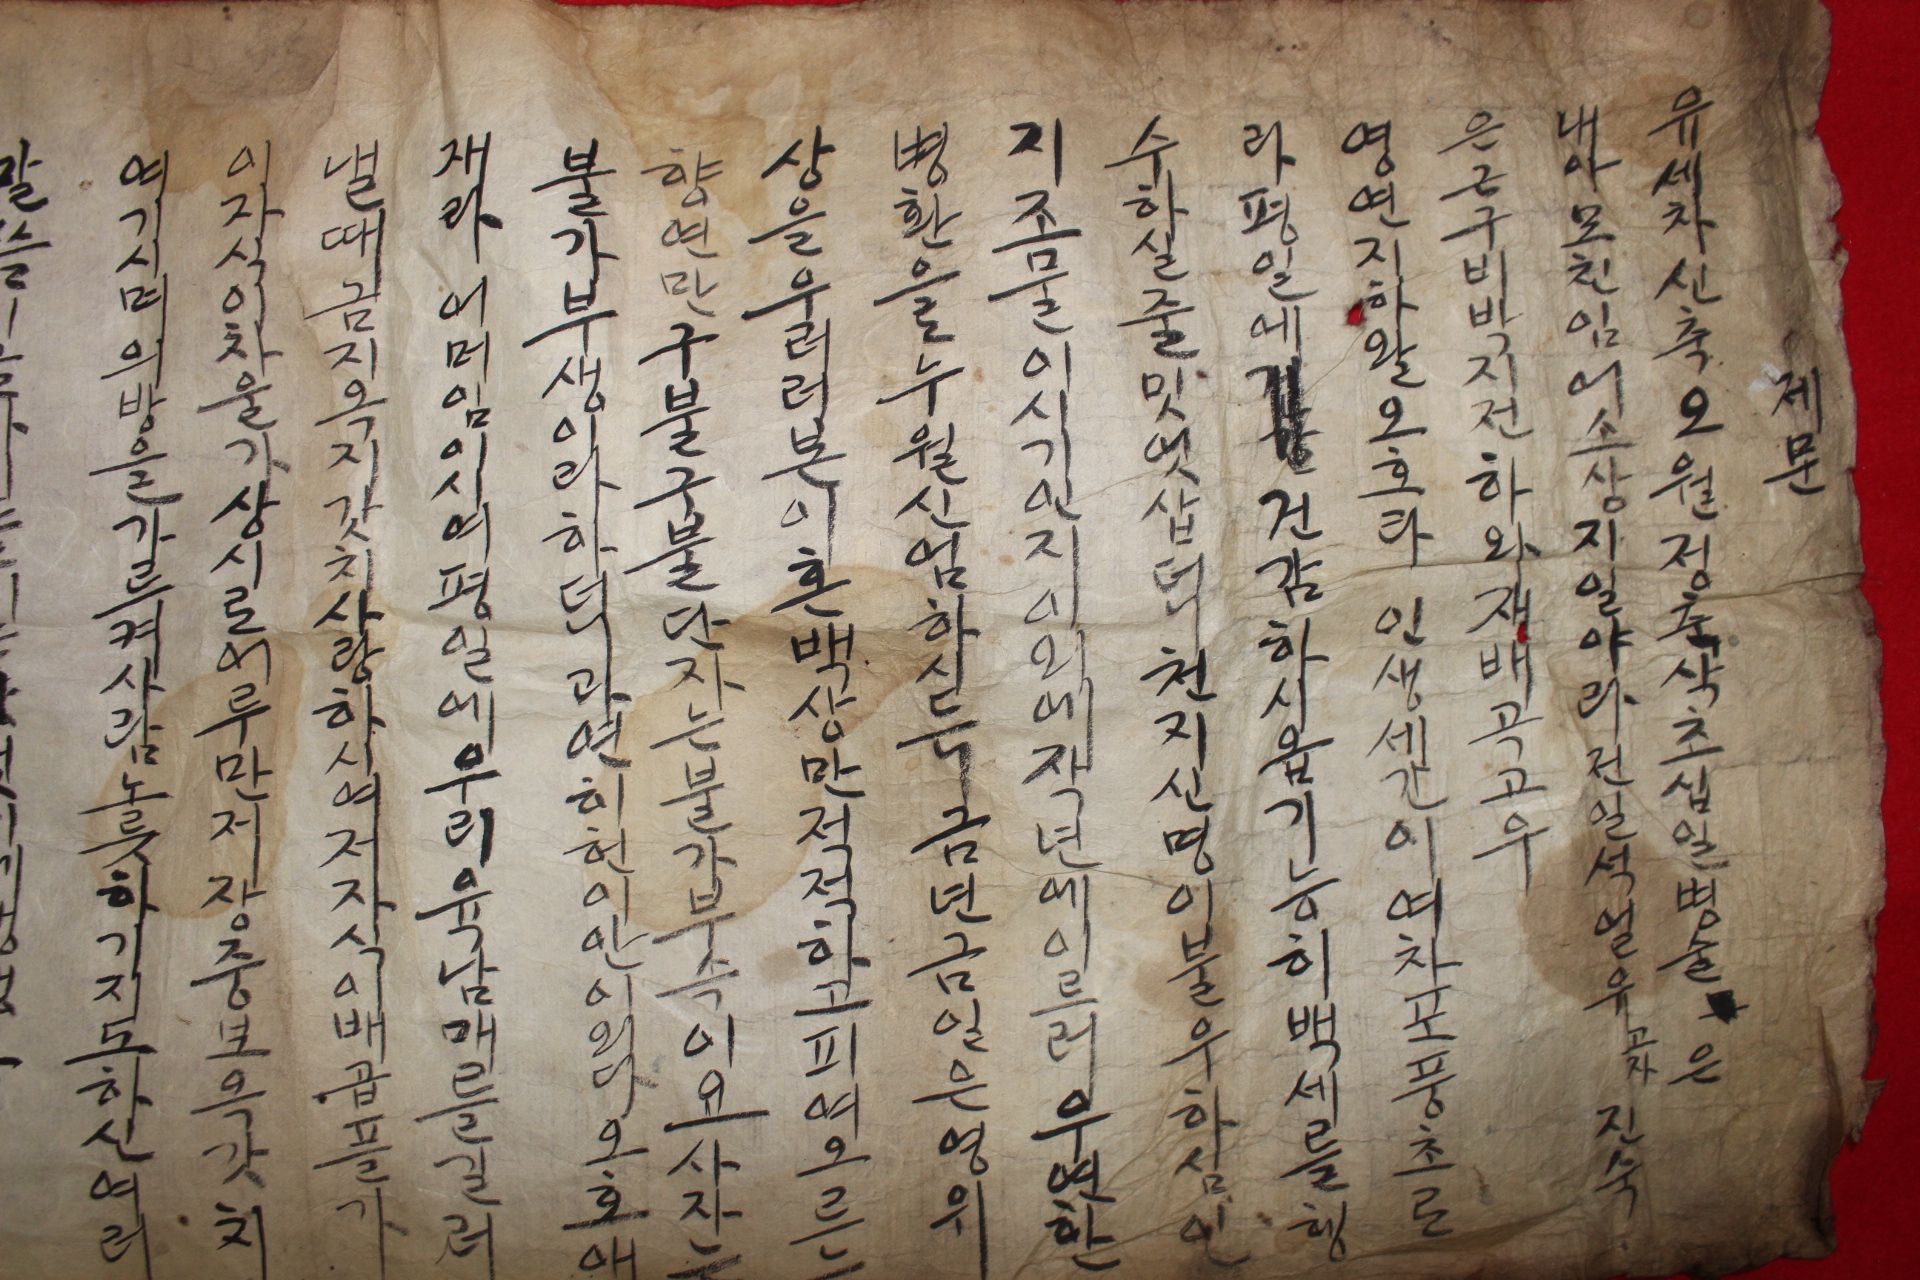 제문
유세차신축오월정축삭초십일병술은
내아모친임어소상지일야라전일석얼유고자진숙
은근구비박지전하와재배곡고우
영연지하왈오호라 인생세간이여차포풍초로
라평일에건강하시옵기능히백세를형
수하실줄밋엇삽더천지신명이불우하심인
지조물이시기인지이외에작년에이르러우연한
병환을누월신엄하시드금년금일은영위
상을우러러본이혼백상만적적하고피여오른
향연만구불구불단자는불가부속이요사자는
불가부생이라하더과연히헌이안이외다오호애
재라 어머임이시여평일에우리육남매를길러
낼때금지옥지갓치사랑하시여저자식이배곱플가
이자식이차울가상시로어루만저장중보옥갓치
여기시며의방을가르켜사람노릇하기지도하신여러
말슴